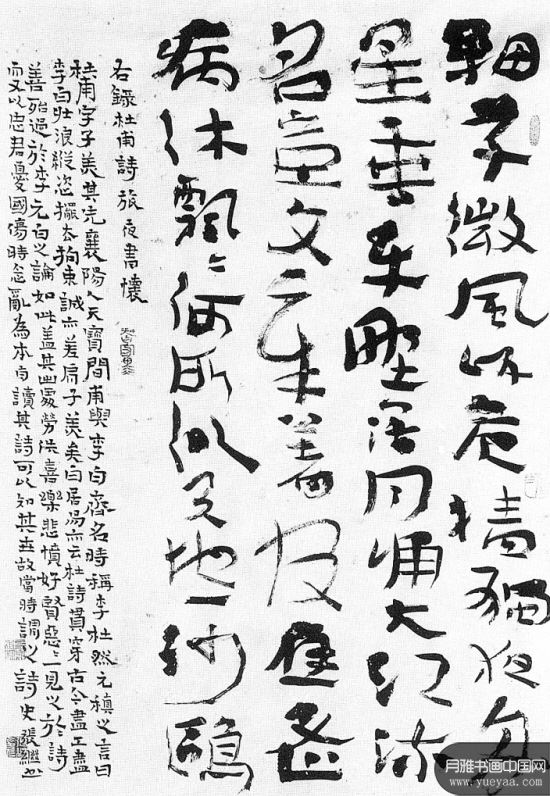 細草微風岸危檣獨夜舟
星垂平野闊月涌大江流
名豈文章著官應老
病休飄〻何所似天地一沙鷗
右錄杜甫詩旅夜書懷
杜甫字子美其先襄陽人天寶間甫與李白齊名時稱李杜然元稹之言曰
李白壯浪縱恣擺去拘束誠亦差肩子美矣白居易亦云杜詩貫穿古今盡工盡
善殆過於李元白之論如此蓋其出處勞佚喜樂悲憤好賢惡〻一見之於詩
又以忠君憂國傷時念亂為本旨讀其詩可以知其世故當時謂之詩史張繼
月雅书画中国网
www.yueyaa.com